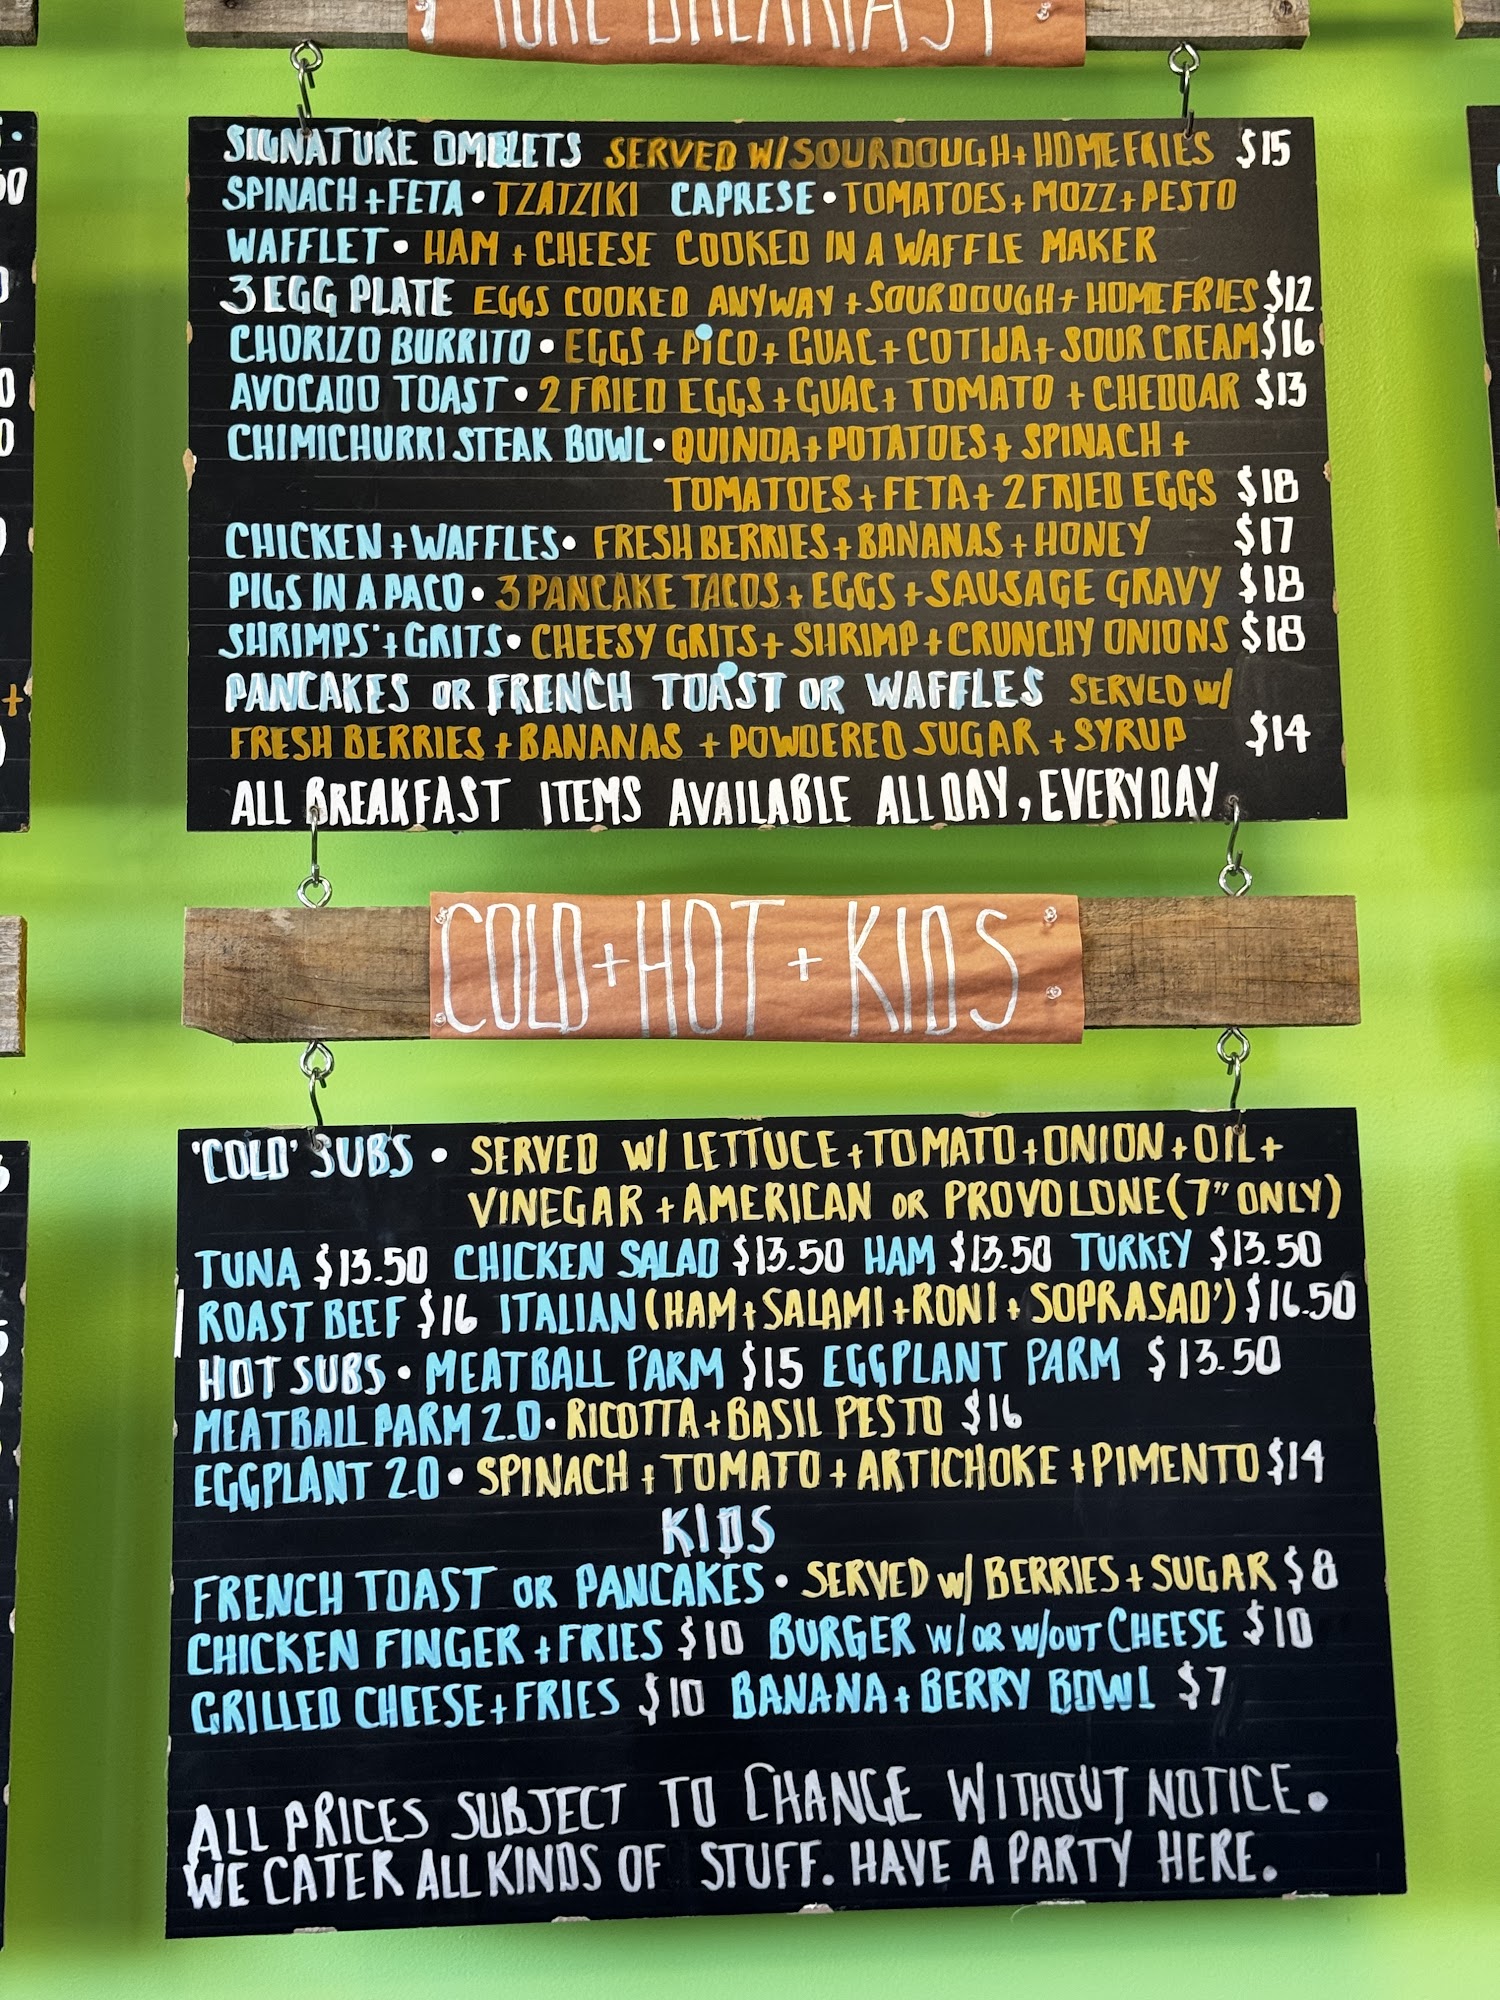 MORE BREAKFAST
SIGNATURE OMELETS SERVED W/SOURDOUGH+HOMEFRIES $15
SPINACH+FETA • TZATZIKI CAPRESE • TOMATOES+MOZZ+PESTO
WAFFLET • HAM+CHEESE COOKED IN A WAFFLE MAKER
3 EGG PLATE EGGS COOKED ANYWAY+SOURDOUGH+HOMEFRIES $12
CHORIZO BURRITO • EGGS+PiCO+GUAC+COTIJA+SOUR CREAM $16
AVOCADO TOAST • 2 FRIED EGGS+GUAC+TOMATO+CHEDDAR $13
CHIMICHURRI STEAK BOWL • QUINOA+POTATOES+SPINACH+
TOMATOES+FETA+2 FRIED EGGS $18
CHICKEN+WAFFLES • FRESH BERRIES+BANANAS+HONEY $17
PIGS IN A PACO • 3 PANCAKE TACOS+EGGS+SAUSAGE GRAVY $18
SHRIMPS'+GRITS • CHEESY GRITS+SHRIMP+CRUNCHY ONIONS $18
PANCAKES OR FRENCH TOAST OR WAFFLES SERVED W/
FRESH BERRIES+BANANAS+POWDERED SUGAR+SYRUP $14
ALL BREAKFAST ITEMS AVAILABLE ALL DAY, EVERYDAY
COLD+HOT+KIDS
'COLD' SUBS • SERVED W/ LETTUCE+TOMATO+ONION+OIL+
VINEGAR+AMERICAN OR PROVOLONE (7" ONLY)
TUNA $13.50 CHICKEN SALAD $13.50 HAM $13.50 TURKEY $13.50
ROAST BEEF $16 ITALIAN (HAM+SALAMI+RONI+SOPRASAD') $16.50
HOT SUBS • MEATBALL PARM $15 EGGPLANT PARM $13.50
MEATBALL PARM 2.0 • RICOTTA+BASIL PESTO $16
EGGPLANT 2.0 • SPINACH+TOMATO+ARTICHOKE+PIMENTO $14
KIDS
FRENCH TOAST OR PANCAKES • SERVED W/ BERRIES+SUGAR $8
CHICKEN FINGER+FRIES $10 BURGER W/ OR W/OUT CHEESE $10
GRILLED CHEESE+FRIES $10 BANANA+BERRY BOWL $7
ALL PRICES SUBJECT TO CHANGE WITHOUT NOTICE.
WE CATER ALL KINDS OF STUFF. HAVE A PARTY HERE.